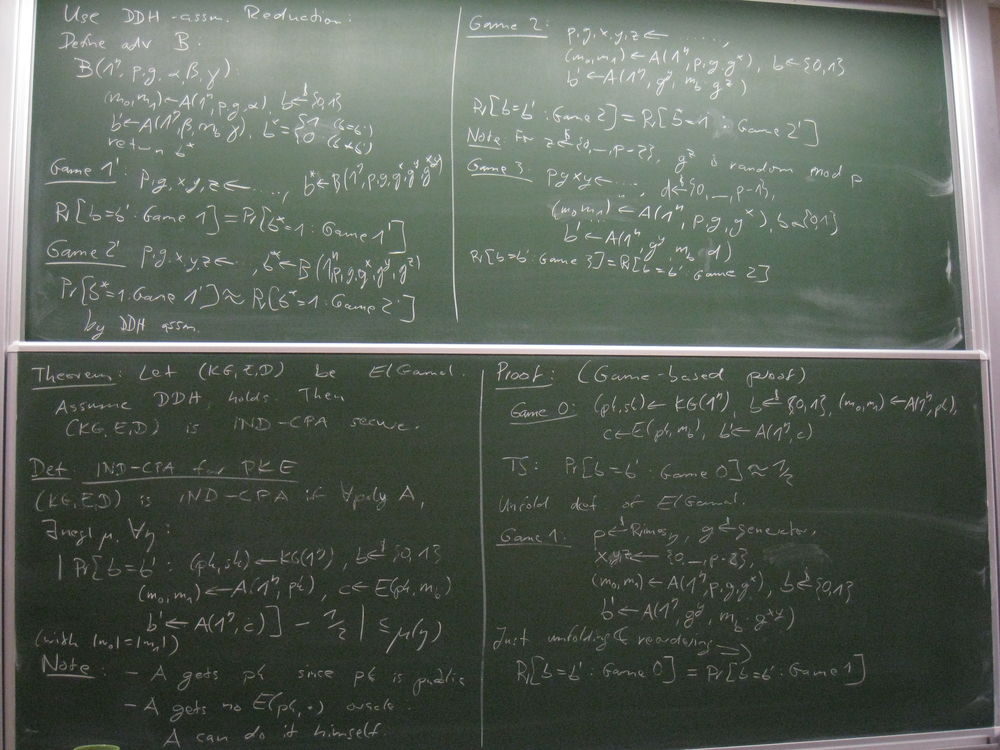 Use DDH-assm. Reduction:
Define adv B:
B(1^η, p, g, α, β, γ):
(m₀,m₁)←A(1^η, p, g, α), b←$ {0,1}
b'←A(1^η, β, m_b·γ), b* = {1 (b=b') 0 (b≠b')
return b*
Game 1': p,g,x,y,z ← ....., b*←B(1^η, p, g, g^x, g^y, g^xy)
Pr[b=b' : Game 1] = Pr[b*=1 : Game 1']
Game 2' p,g,x,y,z ← ...., b*←B(1^η, p, g, g^x, g^y, g^z)
Pr[b*=1 : Game 1'] ≈ Pr[b*=1 : Game 2']
by DDH assm.
Game 2: p,g,x,y,z ← ......,
(m₀,m₁) ← A(1^η, p, g, g^x), b ← {0,1}
b' ← A(1^η, g^y, m_b g^z)
Pr[b=b' : Game 2] = Pr[b*=1 : Game 2']
Note: For z ←$ {0,...,p-2}, g^z is random mod p
Game 3: p g x y ← ....., d ←$ {0,...,p-1},
(m₀,m₁) ← A(1^η, p, g, g^x), b ← {0,1}
b' ← A(1^η, g^y, m_b · d)
Pr[b=b' : Game 3] = Pr[b=b' : Game 2]
Theorem: Let (KG,E,D) be ElGamal.
Assume DDH holds. Then
(KG,E,D) is IND-CPA secure.
Def: IND-CPA for PKE
(KG,E,D) is IND-CPA if ∀poly A,
∃negl μ, ∀η:
| Pr[b=b' : (pk,sk) ← KG(1^η), b ←$ {0,1}
(m₀,m₁) ← A(1^η, pk), c ← E(pk, m_b)
b' ← A(1^η, c)] − 1/2 | ≤ μ(η)
(with |m₀|=|m₁|)
Note: - A gets pk since pk is public
- A gets no E(pk, ·) oracle.
A can do it himself.
Proof: (Game-based proof)
Game 0: (pk,sk) ← KG(1^η), b ←$ {0,1}, (m₀,m₁) ← A(1^η, pk),
c ← E(pk, m_b), b' ← A(1^η, c)
TS: Pr[b=b' : Game 0] ≈ 1/2
Unfold def of ElGamal.
Game 1: p ←$ Primes_η, g ←$ generator,
x,y,z ← {0,...,p-2},
(m₀,m₁) ← A(1^η, p, g, g^x), b ←$ {0,1}
b' ← A(1^η, g^y, m_b · g^xy)
Just unfolding & reordering ⇒
Pr[b=b' : Game 0] = Pr[b=b' : Game 1]